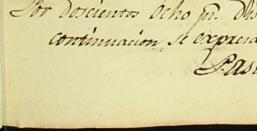 Por doscientos ocho p.r
continuacion se expresa